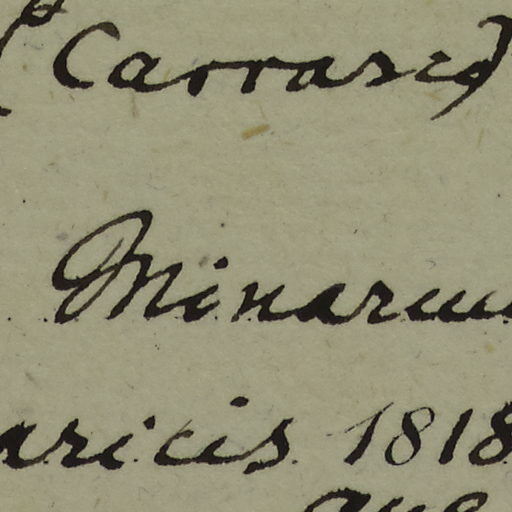 (Carrasco)
Minarum
aricis 1818